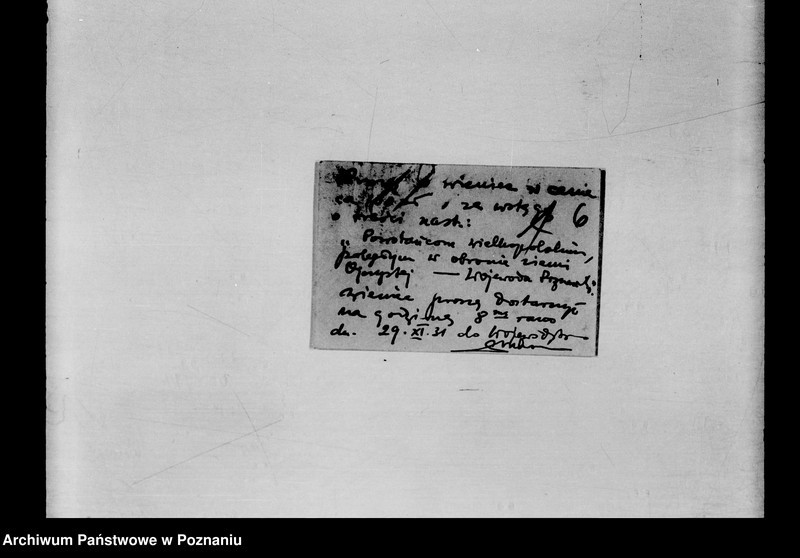 wieniec w cenie
i ze wstęgą 6
o treści nast:
"Powstańcom wielkopolskim,
poległym w obronie ziemi
Ojczystej — Wojewoda Poznański.
wieniec proszę dostarczyć
na godzinę 8 rano
dn. 29.XI.31 do Województwa
Archiwum Państwowe w Poznaniu